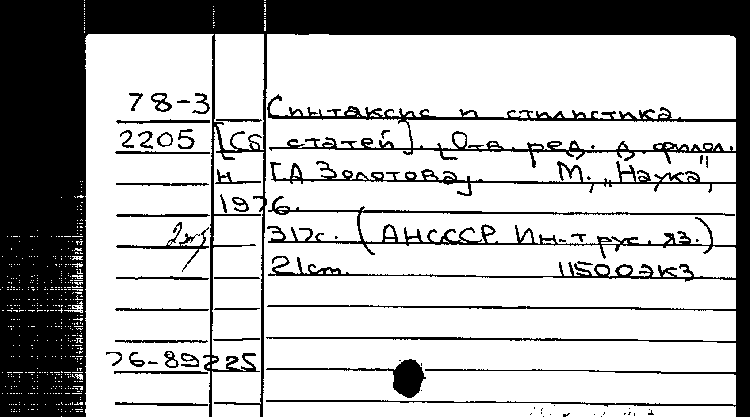 78-3 Синтаксис и стилистика.
2205 [Сб статей]. [Отв. ред. д. филол.
н [А Золотова]. М, „Наука",
1976.
2 317с. (АНСССР. Ин-т рус. яз.)
21cm. 11500экз
76-89225